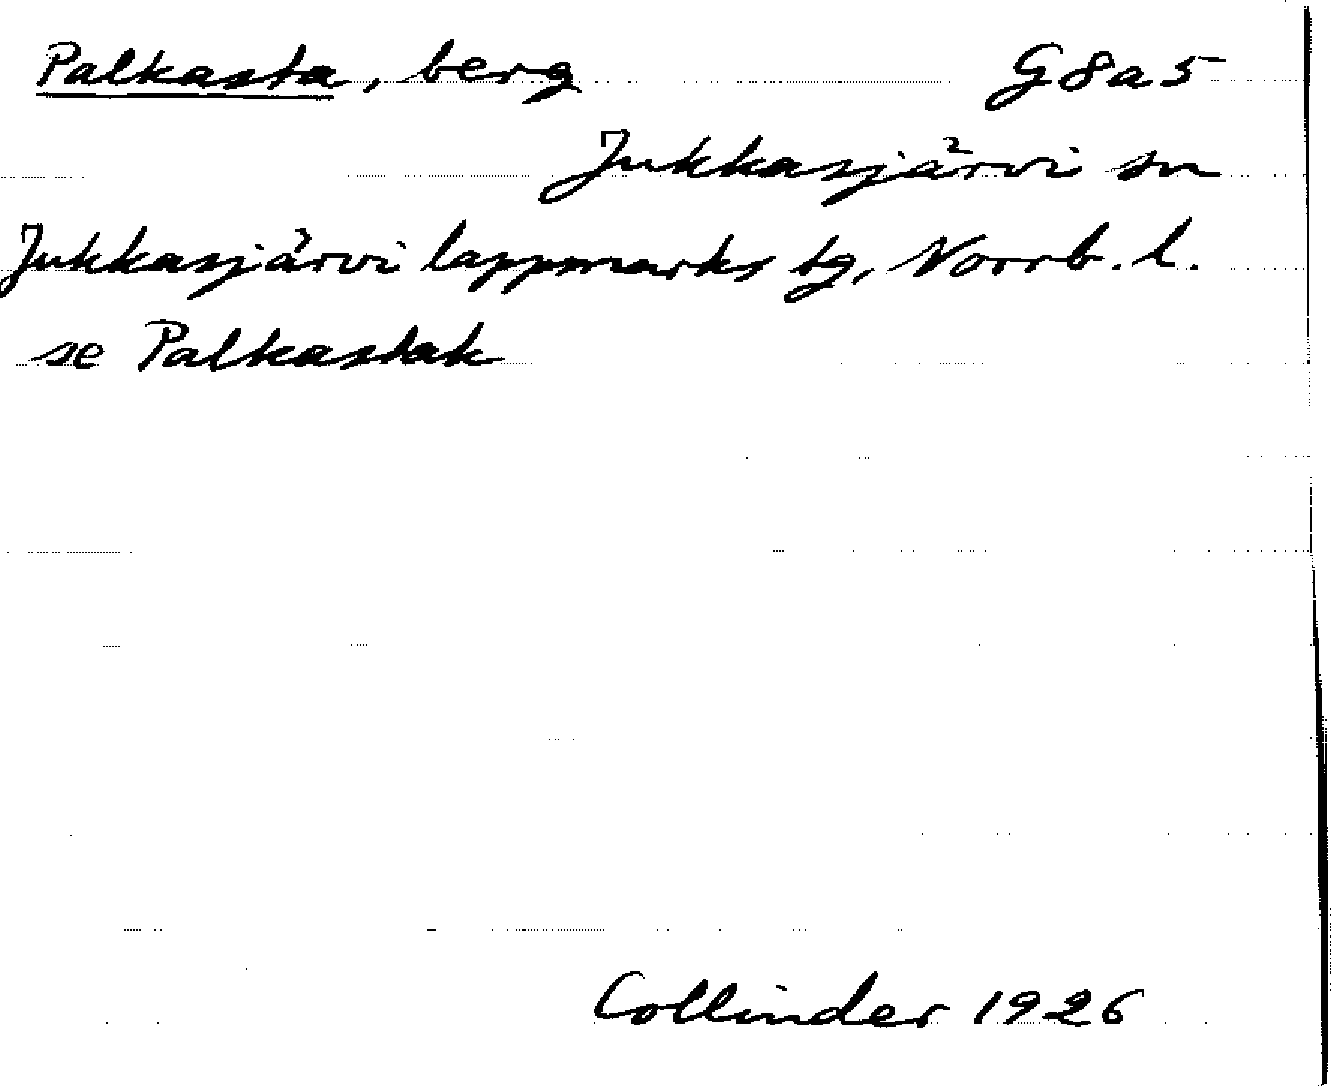 Palkasta, berg G8a5
Jukkasjärvi sn
Jukkasjärvi lappmarks tg, Norrb. l.
se Palkastak
Collinder 1926